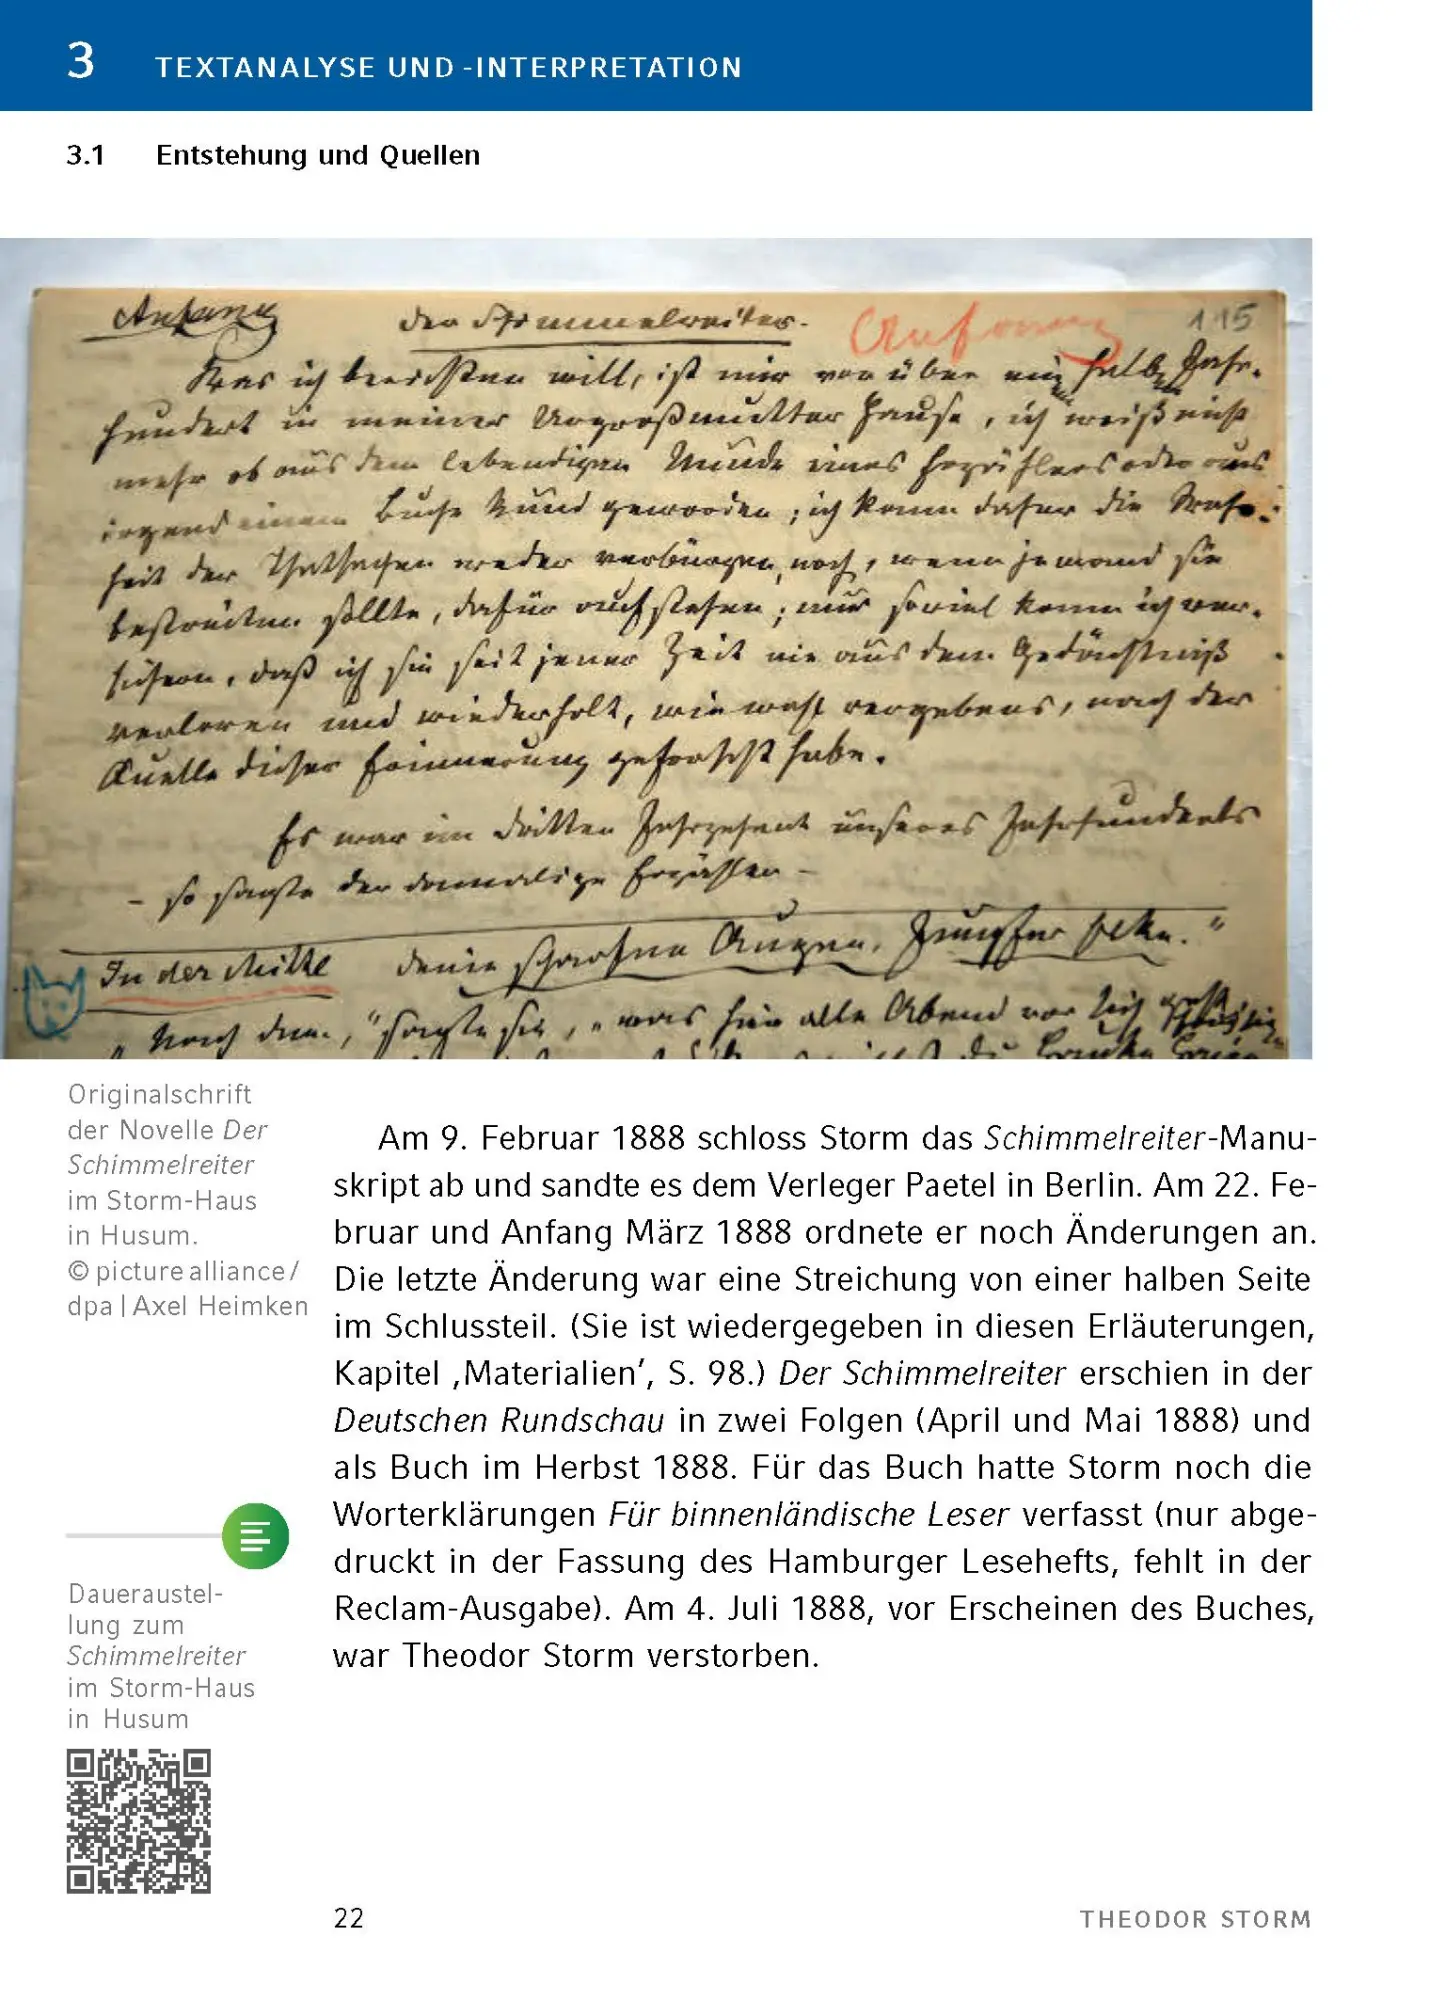 3 TEXTANALYSE UND -INTERPRETATION
3.1 Entstehung und Quellen
Anfang der Schimmelreiter. Anfang 115
Was ich berichten will, ist mir vor über ein halb Jahr-
hundert in meiner Urgroßmutter Hause, ich weiß nicht
mehr ob aus dem lebendigen Munde eines Erzählers oder aus
irgend einem Buche kund geworden; ich kann daher die Wahr-
heit der Thatsachen weder verbürgen, noch, wenn jemand sie
bestreiten sollte, dafür aufstehen; nur soviel kann ich ver-
sichern, daß ich sie seit jener Zeit nie aus dem Gedächtniß
verloren und wiederholt, wie wohl vergebens, nach der
Quelle dieser Erinnerung geforscht habe.
Es war im dritten Jahrzehent unseres Jahrhunderts
– so sagte der damalige Erzähler –
In der Mitte deine scharfen Augen, Jungfer Elke."
„Nach dem," sagte sie, „was hier alle Abend vor sich geht
Originalschrift
der Novelle Der
Schimmelreiter
im Storm-Haus
in Husum.
© picture alliance /
dpa | Axel Heimken
Am 9. Februar 1888 schloss Storm das Schimmelreiter-Manu-
skript ab und sandte es dem Verleger Paetel in Berlin. Am 22. Fe-
bruar und Anfang März 1888 ordnete er noch Änderungen an.
Die letzte Änderung war eine Streichung von einer halben Seite
im Schlussteil. (Sie ist wiedergegeben in diesen Erläuterungen,
Kapitel ‚Materialien', S. 98.) Der Schimmelreiter erschien in der
Deutschen Rundschau in zwei Folgen (April und Mai 1888) und
als Buch im Herbst 1888. Für das Buch hatte Storm noch die
Worterklärungen Für binnenländische Leser verfasst (nur abge-
druckt in der Fassung des Hamburger Lesehefts, fehlt in der
Reclam-Ausgabe). Am 4. Juli 1888, vor Erscheinen des Buches,
war Theodor Storm verstorben.
Daueraustel-
lung zum
Schimmelreiter
im Storm-Haus
in Husum
22 THEODOR STORM